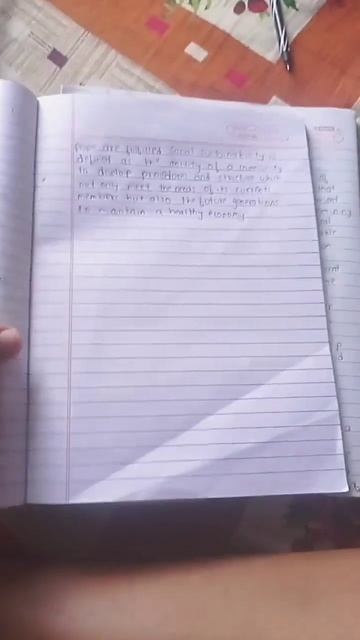 are fulfilled Social Sustainability is
defined as the ability of a
to develop processes and structure which
not only meet the needs of its current
members but also the future generations
to maintain a healthy economy